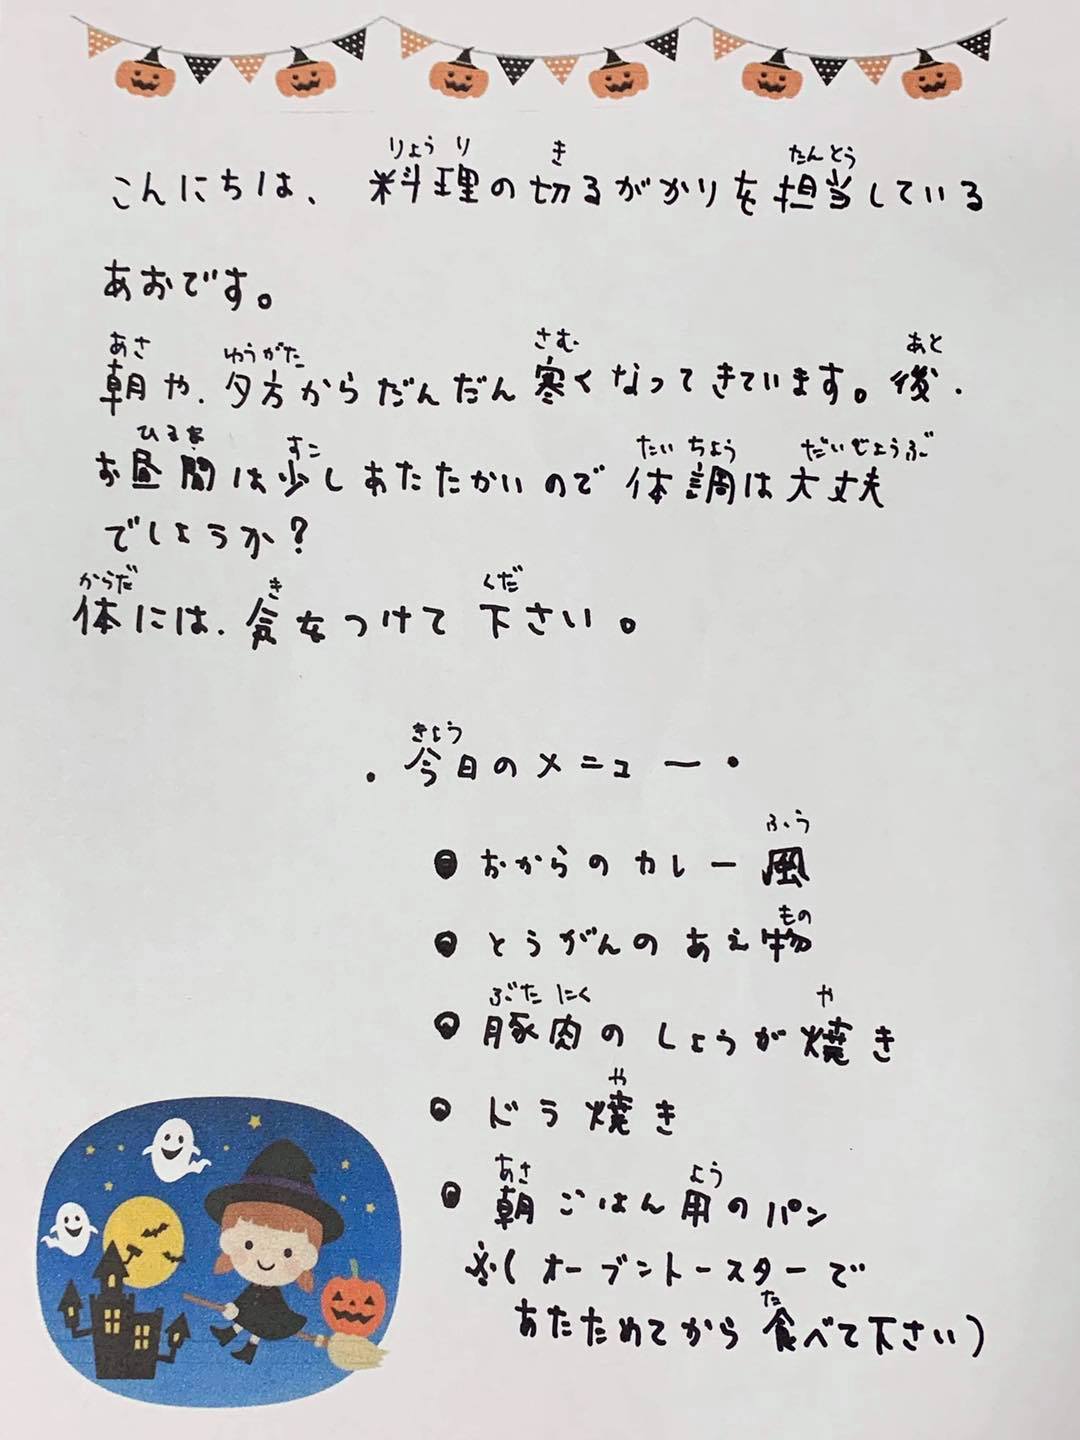 こんにちは、料理の切るがかりを担当している
りょう り き たんとう
あおです。
あさ ゆうがた さむ あと
朝や、夕方からだんだん寒くなってきています。後、
ひるま すこ たいちょう だいじょうぶ
お昼間は少しあたたかいので体調は大丈夫
でしょうか？
からだ き くだ
体には、気をつけて下さい。
きょう
・今日のメニュー・
ふう
●おからのカレー風
もの
●とうがんのあえ物
ぶたにく や
●豚肉のしょうが焼き
や
●ドラ焼き
あさ よう
●朝ごはん用のパン
※(オーブントースターで
た
あたためてから食べて下さい)